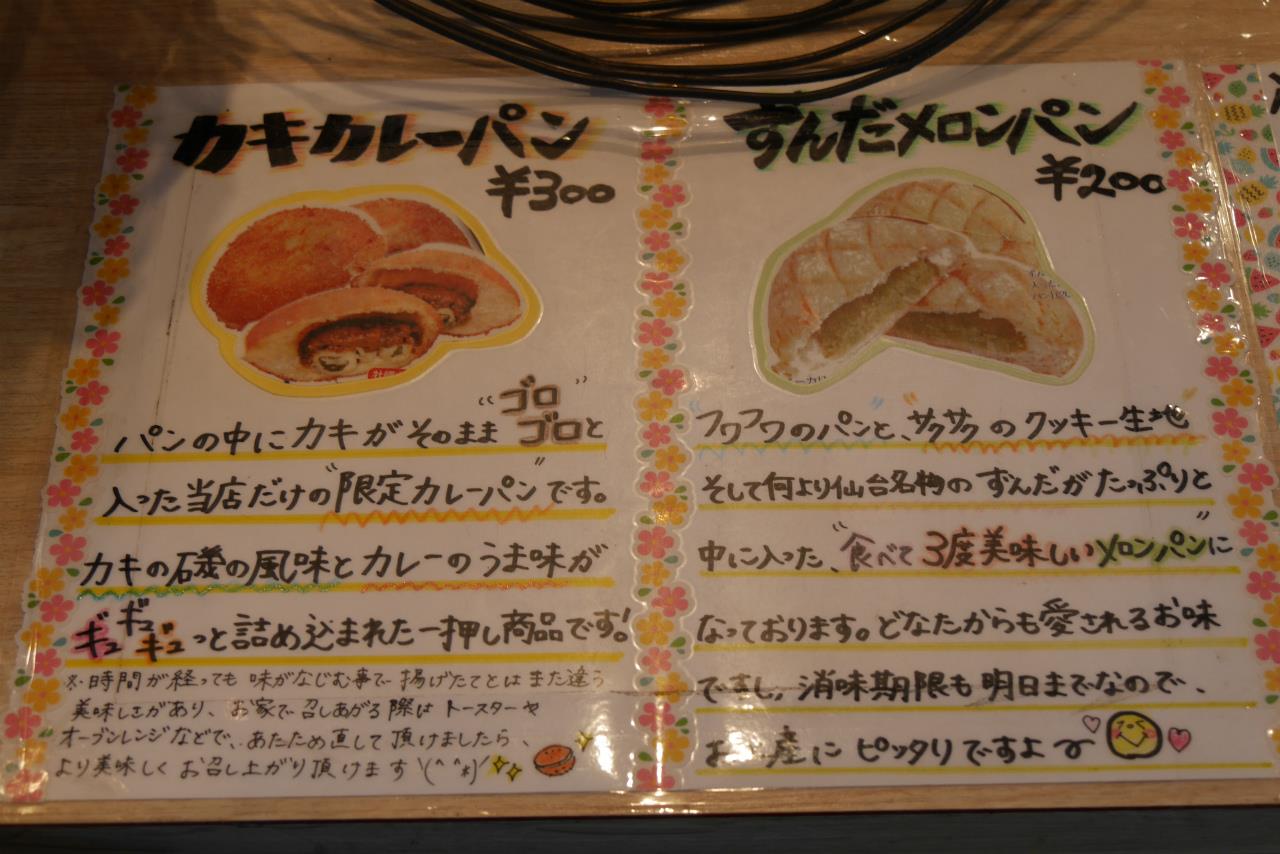 カキカレーパン
¥300
パンの中にカキがそのまま"ゴロゴロ"と
入った当店だけの"限定カレーパン"です。
カキの石礒の風味とカレーのうま味が
ギュギュギュっと詰め込まれた一押し商品です!
※時間が経っても味がなじむ事で揚げたてとはまた違う
美味しさがあり、お家で召しあがる際はトースターや
オーブンレンジなどで、あたため直して頂けましたら、
より美味しくお召し上がり頂けます\(^^*)/
ずんだメロンパン
¥200
"フワフワのパン"と、"サクサクのクッキー生地"
そして何より仙台名物のずんだがたっぷりと
中に入った、"食べて3度美味しいメロンパン"に
なっております。どなたからも愛されるお味
ですし、消味期限も明日までなので、
お 産にピッタリですよ